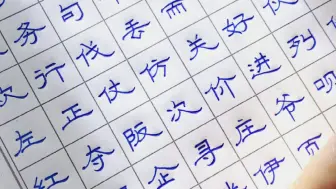 务句
行伐丢而
左正仗仿关好
红夺阪次价进列
企寻庄爷呗
伊页